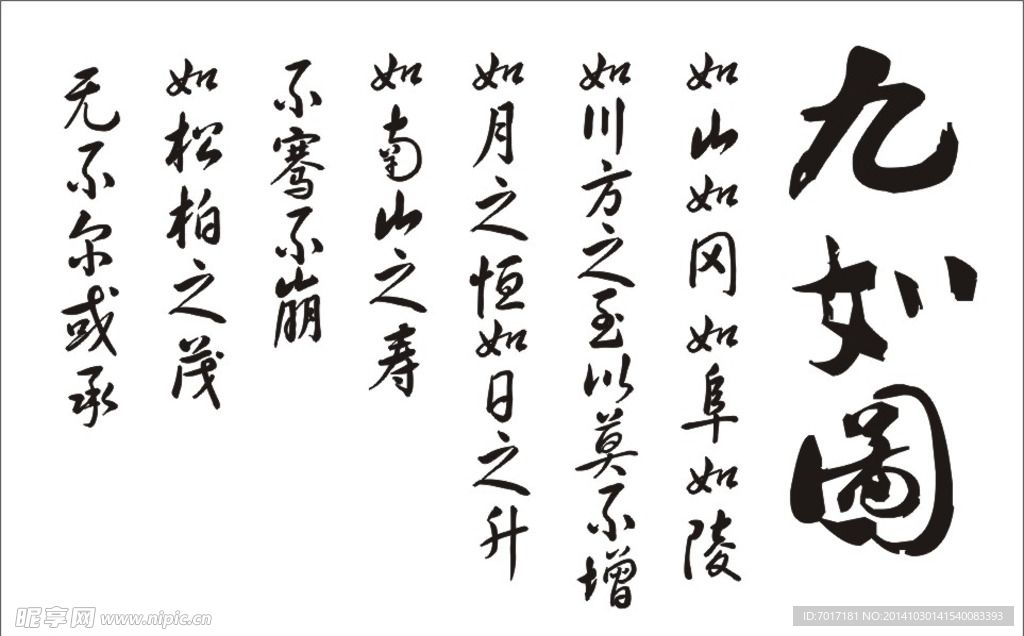 九如图
如山如冈如阜如陵
如川方之至以莫不增
如月之恒如日之升
如南山之寿
不骞不崩
如松柏之茂
无不尔或承
昵享网 www.nipic.cn
ID:7017181 NO:20141030141540083393